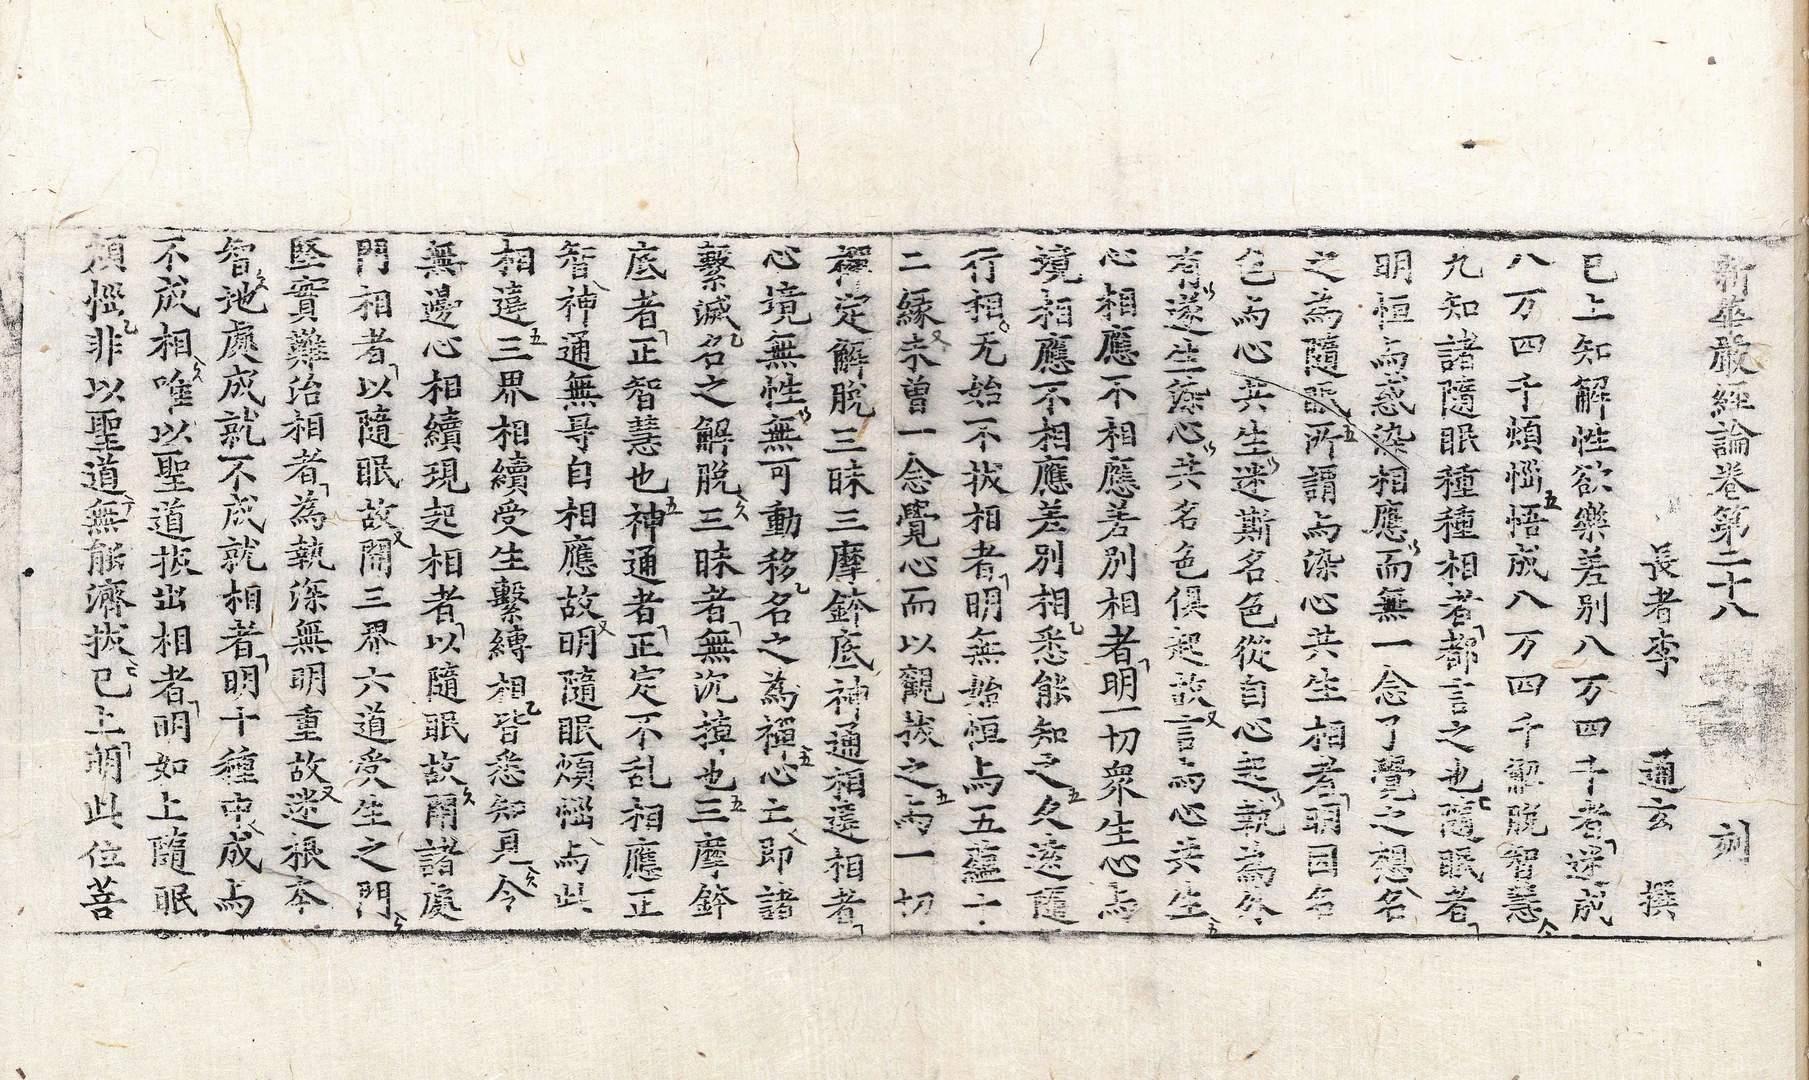 新華嚴經論卷第二十八　刻
長者李　通玄　撰
已上知解性欲樂差別八万四千者迷成
八万四千煩惱悟成八万四千解脫智慧
九知諸隨眠種種相者都言之也隨眠者
明恒与惑染相應而無一念了覺之想名
之為隨眠所謂与染心共生相者明因名
色与心共生迷斯名色從自心起執為外
有遂生染心共名色俱起故言与心共生
心相應不相應差別相者明一切衆生心与
境相應不相應差別相悉能知之久遠隨
行相无始不拔相者明無始恒与五蘊十
二縁未曾一念覺心而以觀拔之与一切
禪定解脫三昧三摩鉢底神通相違相者
心境無性無可動移名之為禪心亡即諸
繫滅名之解脫三昧者無沉掉也三摩鉢
底者正智慧也神通者正定不乱相應正
智神通無㝵自相應故明隨眠煩惱与此
相違三界相續受生繫縛相皆悉知見令
無邊心相續現起相者以隨眠故開諸處
門相者以隨眠故開三界六道受生之門
堅實難治相者為執深無明重故迷根本
智地處成就不成就相者明十種中成与
不成相唯以聖道拔出相者明如上隨眠
煩惱非以聖道無能濟拔已上明此位菩